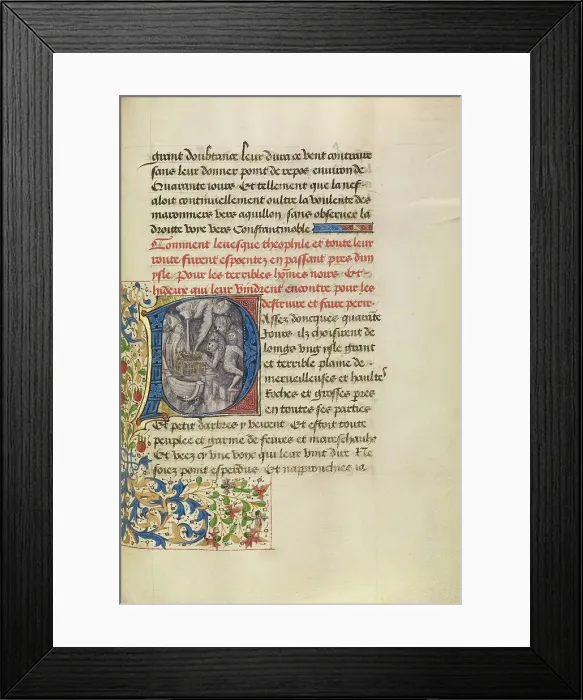 grant doubtance leur dura ce vent contraire
sans leur donner point de repos environ de
Quarante iours Et tellement que la nef
aloit continuellement oultre la voulente des
maronniers vers aquillon sans obseruer la
droite voye vers Constantinoble
Comment leuesque theophile et toute leur
route furent espoentez en passant pres dun
ysle Pour les terribles hommes noirs Et
hideux qui leur vindrent encontre pour les
destruire et faire perir
Assez doncques quarate
Iours ilz choisirent de
loings vng ysle grant
et terrible plaine de
merueilleuses et haultes
Roches et grosses pres
en toutes ses parties
Et petit darbres y beurent Et estoit toute
peuplee et garnie de feures et mareschaulx
Et veez cy vne voix qui leur vint dire Ne
soiez point esperdus Et napprouchies ia